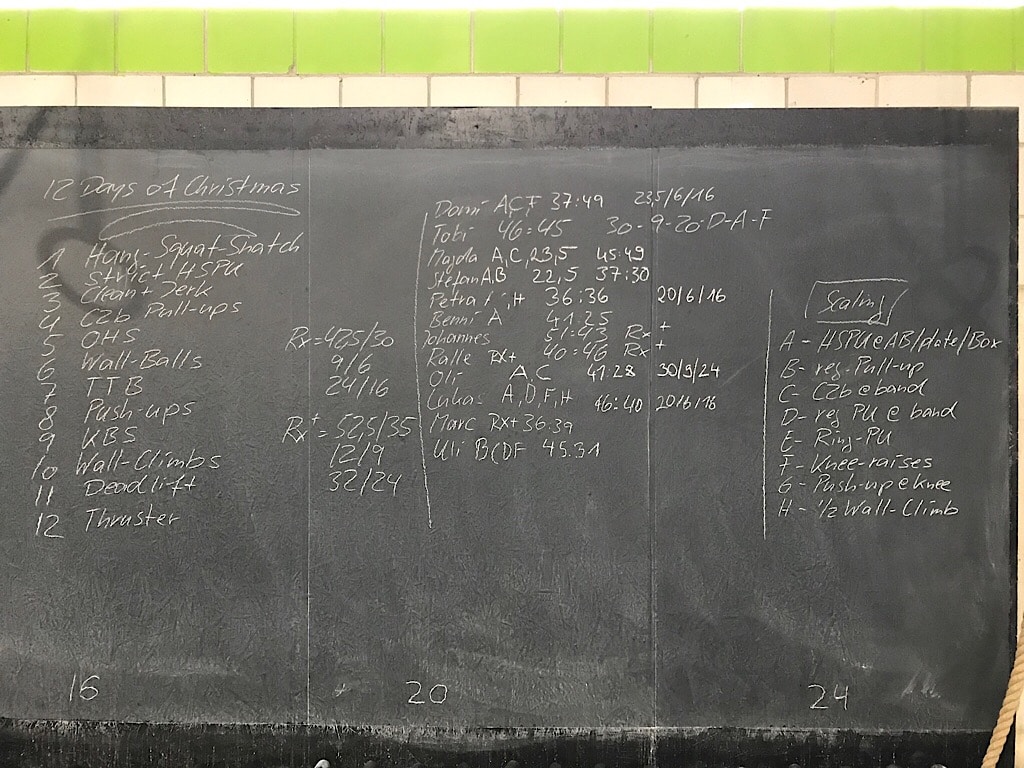 12 Days of Christmas
1 Hang-Squat-Snatch
2 Strict HSPU
3 Clean + Jerk
4 C2b Pull-ups
5 OHS
6 Wall-Balls
7 TTB
8 Push-ups
9 KBS
10 Wall-Climbs
11 Deadlift
12 Thruster
Rx = 42,5/30
9/6
24/16
Rx+ = 52,5/35
12/9
32/24
Domi A,C,F 37:49 23,5/6/16
Tobi 46:45 30-9-20: D-A-F
Majda A, C, 23,5 45:49
Stefan A,B 22,5 37:30
Petra F, H 36:36 20/6/16
Benni A 41:25
Johannes 51:43 Rx+
Ralle Rx+ 40:46 Rx+
Oli A, C 41:28 30/9/24
Lukas A, D, F, H 46:40 20/6/16
Marc Rx+ 36:39
Uli BCDF 45:31
Scaling
A - HSPU @ AB/plate/Box
B - reg. Pull-up
C - C2b @ band
D - reg PU @ band
E - Ring-PU
F - Knee-raises
G - Push-up @ knee
H - 1/2 Wall-Climb
16 20 24